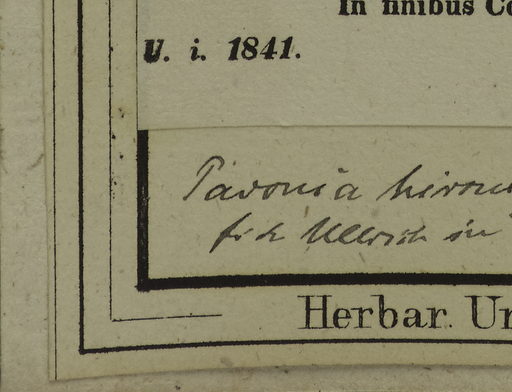 In finibus Co
U. i. 1841.
Pavonia hirsu
fid. Ullrich in
Herbar. Un